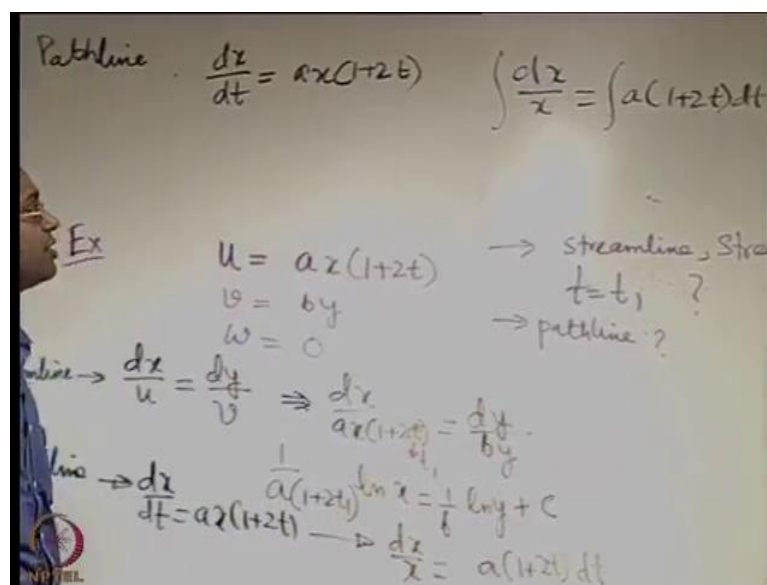 Pathline. dx/dt = ax(1+2t) ∫dx/x = ∫a(1+2t)dt
Ex u = ax(1+2t) → streamline, Stre
v = by t=t₁ ?
w = 0 → pathline ?
mline → dx/u = dy/v ⇒ dx/ax(1+2t₁) = dy/by.
1/a(1+2t₁) ln x = 1/b ln y + C
line → dx/dt = ax(1+2t) → dx/x = a(1+2t) dt
NPTEL